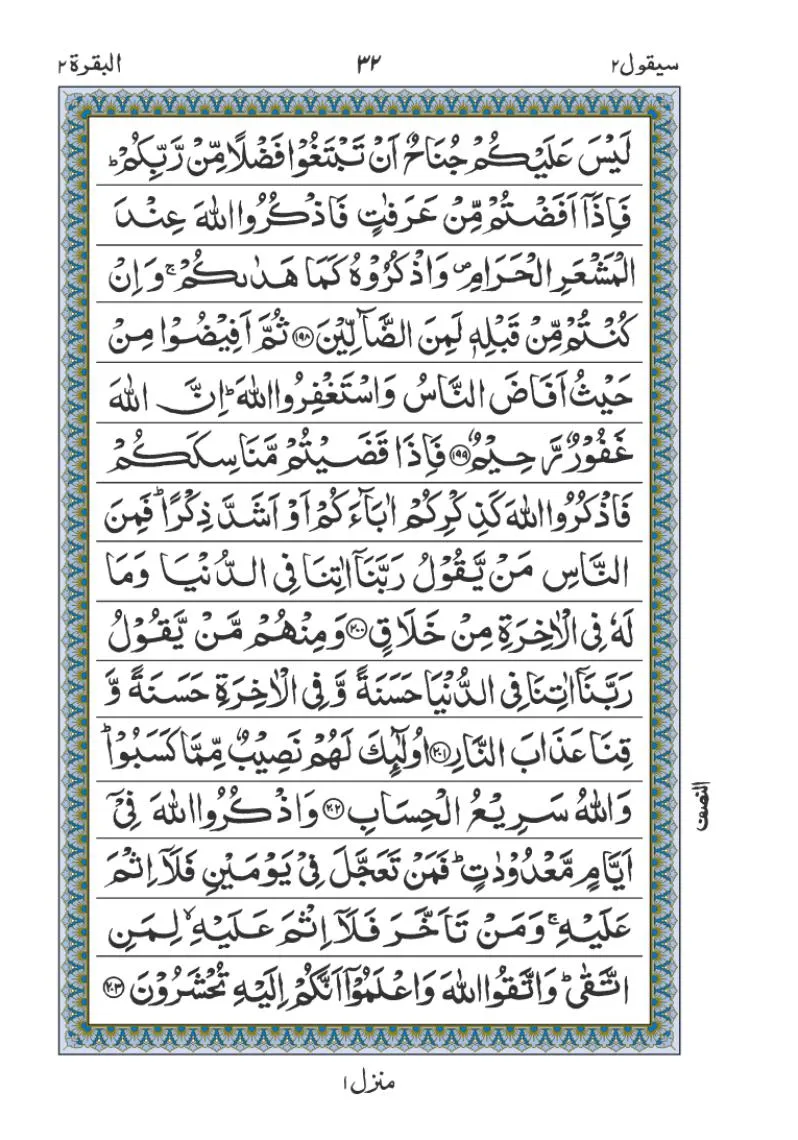 سيقول٢ ٣٢ البقرة٢
لَيْسَ عَلَيْكُمْ جُنَاحٌ اَنْ تَبْتَغُوْا فَضْلًا مِّنْ رَّبِّكُمْ ؕ
فَاِذَاۤ اَفَضْتُمْ مِّنْ عَرَفٰتٍ فَاذْكُرُوا اللّٰهَ عِنْدَ
الْمَشْعَرِ الْحَرَامِ ۪ وَاذْكُرُوْهُ كَمَا هَدٰىكُمْ ۚ وَاِنْ
كُنْتُمْ مِّنْ قَبْلِهٖ لَمِنَ الضَّآلِّيْنَ ﴿۱۹۸﴾ ثُمَّ اَفِيْضُوْا مِنْ
حَيْثُ اَفَاضَ النَّاسُ وَاسْتَغْفِرُوا اللّٰهَ ؕ اِنَّ اللّٰهَ
غَفُوْرٌ رَّحِيْمٌ ﴿۱۹۹﴾ فَاِذَا قَضَيْتُمْ مَّنَاسِكَكُمْ
فَاذْكُرُوا اللّٰهَ كَذِكْرِكُمْ اٰبَآءَكُمْ اَوْ اَشَدَّ ذِكْرًا ؕ فَمِنَ
النَّاسِ مَنْ يَّقُوْلُ رَبَّنَاۤ اٰتِنَا فِى الدُّنْيَا وَمَا
لَهٗ فِى الْاٰخِرَةِ مِنْ خَلَاقٍ ﴿۲۰۰﴾ وَمِنْهُمْ مَّنْ يَّقُوْلُ
رَبَّنَاۤ اٰتِنَا فِى الدُّنْيَا حَسَنَةً وَّفِى الْاٰخِرَةِ حَسَنَةً وَّ
قِنَا عَذَابَ النَّارِ ﴿۲۰۱﴾ اُولٰٓئِكَ لَهُمْ نَصِيْبٌ مِّمَّا كَسَبُوْا ؕ
وَاللّٰهُ سَرِيْعُ الْحِسَابِ ﴿۲۰۲﴾ وَاذْكُرُوا اللّٰهَ فِىْۤ
النصف
اَيَّامٍ مَّعْدُوْدٰتٍ ؕ فَمَنْ تَعَجَّلَ فِىْ يَوْمَيْنِ فَلَاۤ اِثْمَ
عَلَيْهِ ۚ وَمَنْ تَاَخَّرَ فَلَاۤ اِثْمَ عَلَيْهِ ۙ لِمَنِ
اتَّقٰى ؕ وَاتَّقُوا اللّٰهَ وَاعْلَمُوْۤا اَنَّكُمْ اِلَيْهِ تُحْشَرُوْنَ ﴿۲۰۳﴾
منزل ١